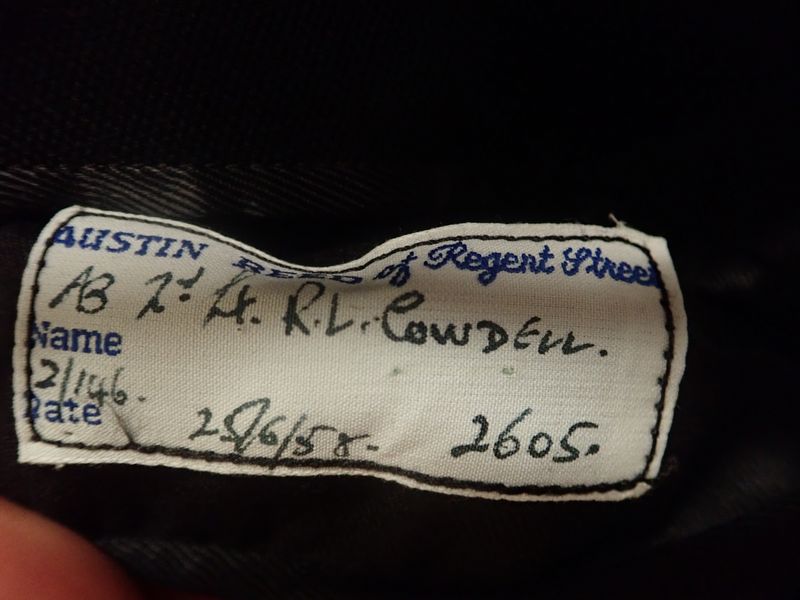 AUSTIN REED of Regent Street
AB 2d Lt. R.L. COWDELL.
Name
2/146.
Date
25/6/58. 2605.